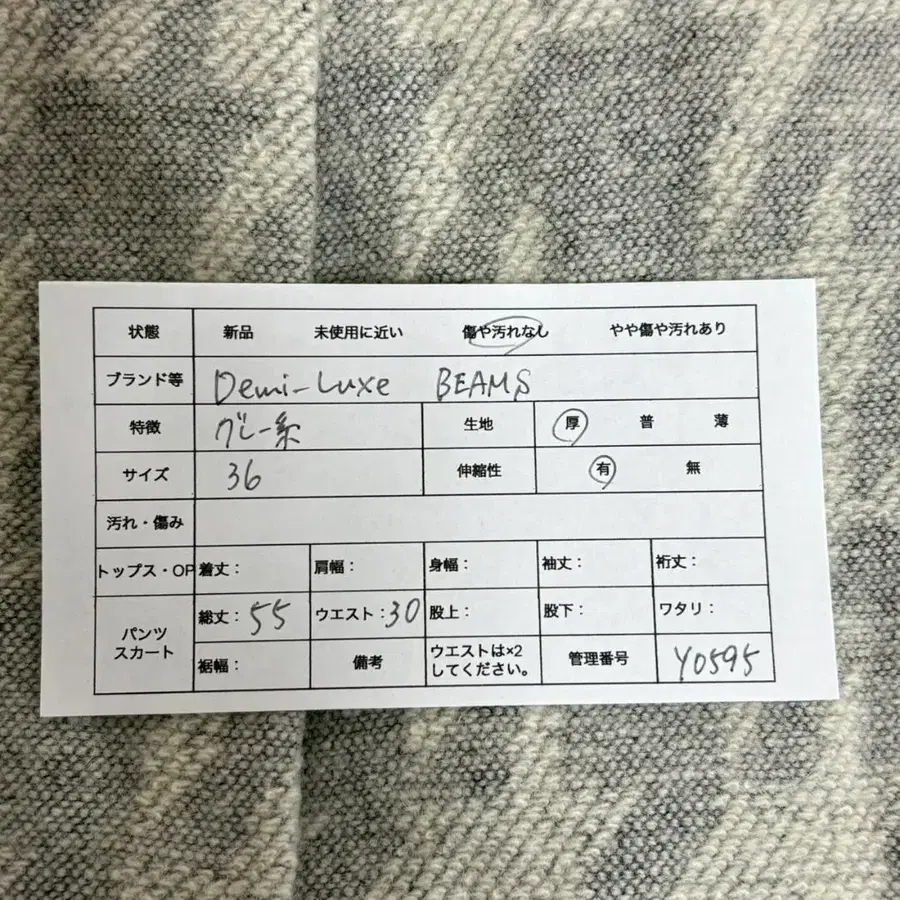 状態 新品 未使用に近い 傷や汚れなし やや傷や汚れあり
ブランド等 Demi-Luxe BEAMS
特徴 グレー系 生地 厚 普 薄
サイズ 36 伸縮性 有 無
汚れ・傷み
トップス・OP 着丈: 肩幅: 身幅: 袖丈: 裄丈:
パンツ
スカート
総丈: 55 ウエスト: 30 股上: 股下: ワタリ:
裾幅: 備考
ウエストは×2
してください。
管理番号 Y0595